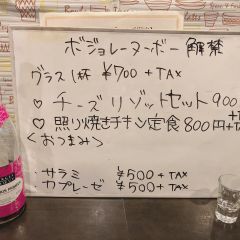 ボジョレーヌーボー 解禁
グラス1杯 ¥700 + TAX
♡ チーズリゾットセット 900
+TAX
♡ 照り焼きチキン定食 800円+TAX
<おつまみ>
・サラミ ¥500 + TAX
・カプレーゼ ¥500 + TAX